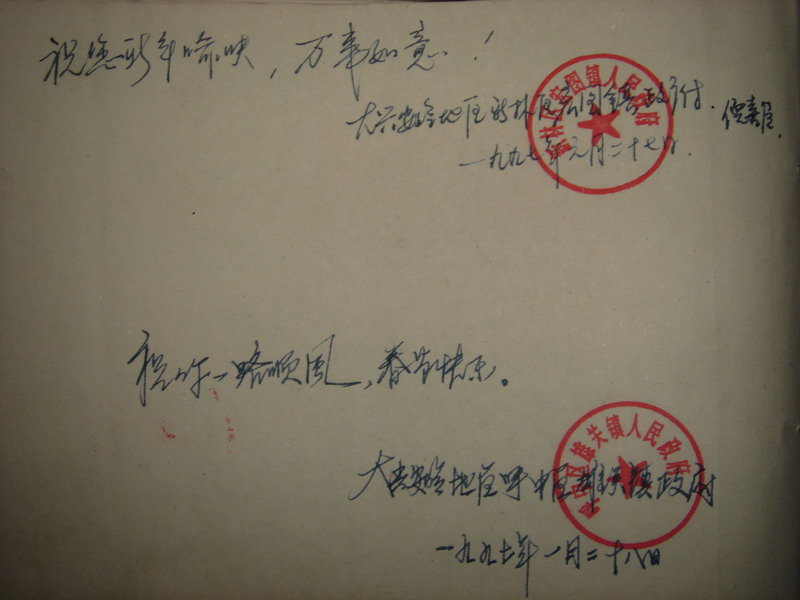 祝您新年愉快，万事如意！
大兴安岭地区新林区宏图镇政府.
一九九七年元月二十七日.
新林区宏图镇人民政府
祝你一路顺风，春节快乐。
大兴安岭地区呼中区雄关镇政府
一九九七年一月二十八日
呼中区雄关镇人民政府